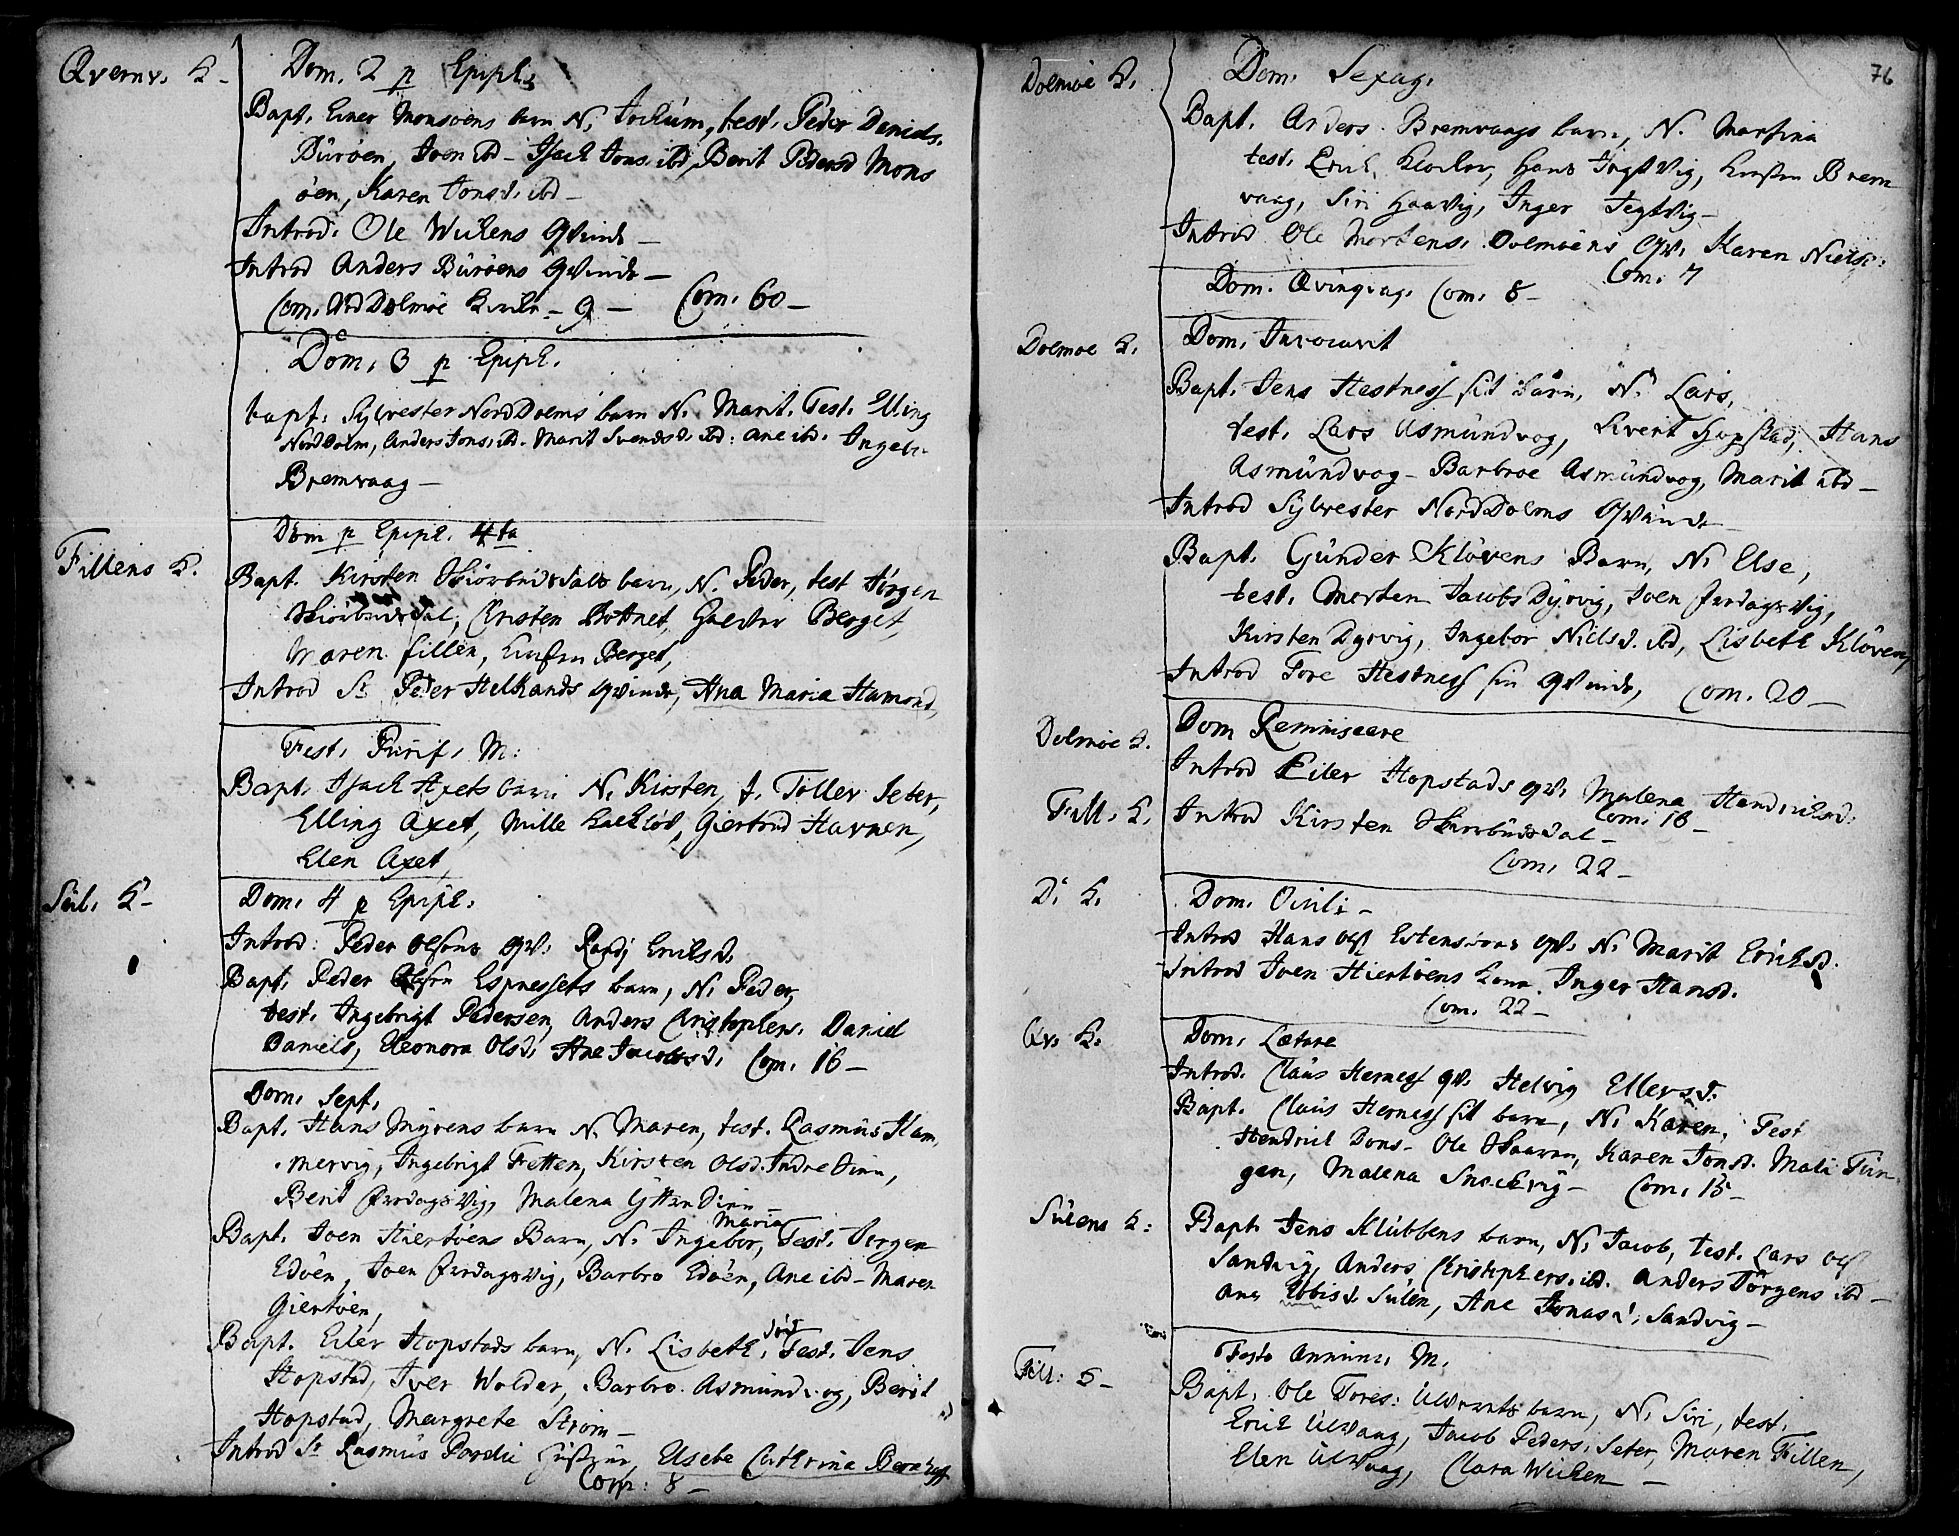 Qvernv. K.
Dom. 2 p Epiph.
Bapt. Einer Monsøens barn N. Jochum, test. Peder Daniels.
Burøen, Joen ibd - Isach Jons. ibd, Berit Pedersd Mons
øen, Karen Jonsd. ibd -
Introd. Ole Wickens Qvinde -
Introd Anders Burøens Qvinde -
Com. Ved Dolmøe Kircke - 9 - Com. 60 -
Dom. 3 p Epiph.
bapt. Sylvester NordDolms barn N. Marit. Test. Elling
NordDolm, Anders Jons. ibd. Marit Svendsd. ibd: Ane ibd. Ingebr
Bremvaag -
Fillens K.
Dom p Epiph. 4ta
Bapt. Kirsten Skiørbudsdals barn, N. Peder, test Jørgen
Skiørbudsdal, Christen Bottnet, Berget,
Maren Fillen, Berget,
Introd Sr Peder Helkands Qvinde, Ana Maria Hamond,
Fest. Purif. M:
Bapt. Isach Axets barn N. Kirsten, t. Toller Seter,
Elling Axet, Mille Giertrud Havnen,
Elen Axet,
Sul. K -
Dom. 4 p Epiph.
Introd: Peder Olsøns qv: Randj Ericksd.
Bapt. Peder Olsøn Espnessets barn, N. Peder,
test. Ingebrigt Pedersen, Anders Christophers. Daniel
Daniels, Eleonora Olsd. Ane Jacobsd. Com. 16 -
Dom. Sept.
Bapt. Hans Myrens barn N. Maren, test. Rasmus Ham
mervig, Ingebrigt Fetten, Kirsten Olsd. Indre
Berit Jerdagsvig, Malena
Maria
Bapt. Joen Hiertøens Barn, N. Ingebor, Test. Jørgen
Edøen, Joen Jerdagsvig, Barbro Edøen, Ane ibd - Maren
Giertøen,
død
Bapt. Eiler Hopstads barn, N. Lisbeth, Test. Jens
Hopstad, Iver Wolder, Barbro Asmundvog, Berit
Hopstad, Margrete Strøm -
Introd Sr Rasmus Elsebe Cathrina
Com: 8 -
76
Dolmøe K.
Dom. Sexag.
Bapt. Anders Bremvaags barn, N. Martina
test. Erich Klocker, Hans Jegtvig, Brem
vaag, Siri Haavig, Inger Jegtvig -
Introd Ole Mortens. Dolmøens Qv. Karen Nielsd:
Com. 7
Dom. Qvinqvag. Com. 8 -
Dolmøe K.
Dom. Invocavit
Bapt. Jens Hestness sit Barn, N. Lars,
test. Lars Asmundvog, Sivert Hopstad, Hans
Asmundvog - Barbroe Asmundvog, Marit ibd -
Introd Sylvester NordDolms Qvinde
Bapt. Gunder Kløvens Barn, N. Else,
test. Morten Jacobs Dyrvig, Joen Jerdagsvig,
Kirsten Dyrvig, Ingebor Nielsd. ibd, Lisbeth Kløven,
Introd Tore Hestness sin Qvinde, Com. 20 -
Dolmøe K.
Dom Reminiscere
Introd Eiler Hopstads qv. Malena Hendricksd:
Com. 16 -
Fill. K.
Introd Kirsten Skiørbudsdal -
Com. 22 -
D. K.
Dom. Oculi -
Introd Hans Ols Estensøens qv. N. Marit Ericksd.
Introd Joen Hiertøens kone Inger Hansd.
Com. 22 -
Qv. K.
Dom. Lætare
Introd. Claus Herness qv. Helvig Ellersd.
Bapt. Claus Herness sit barn, N. Karen, Test
Hendrick Dons - Ole Karen Jonsd. Mali Tun
gen, Malena Snechvig - Com. 15 -
Sulens K:
Bapt. Jens Klubbens barn, N. Jacob, test. Lars Ols
Sandvig, Anders Christophers. ibd. Anders Jørgens ibd -
Ane Ebbisd. Sulen, Ane Jonasd. Sandvig -
Fill: K -
Festo Annunc. M.
Bapt. Ole Tores: Ulvaags barn, N. Siri, test.
Erick Ulvaag, Jacob Peders. Seter, Maren Fillen,
Elen Ulvaag, Clara Wicken -